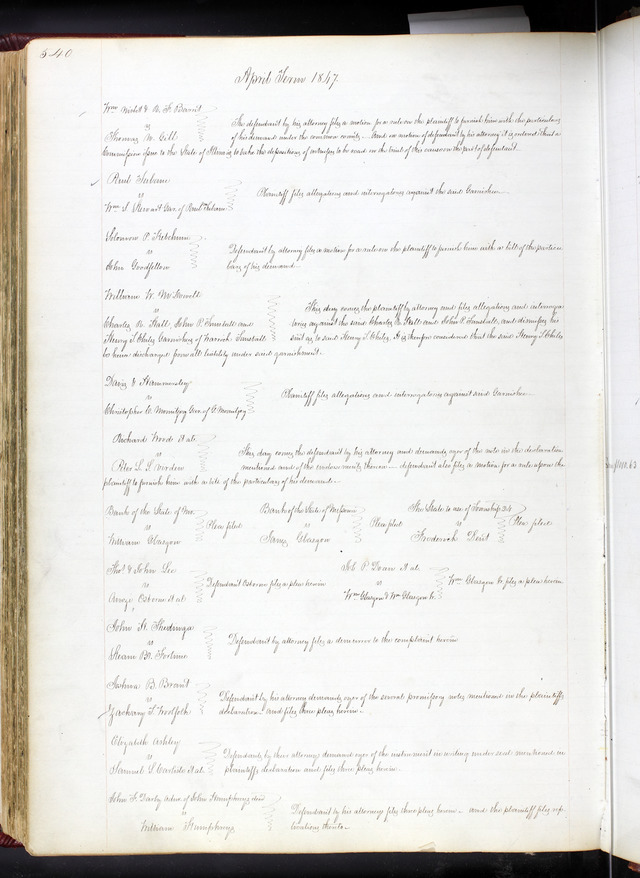 540
April Term 1847
vs
The defendant by his attorney files a motion for a rule on the plaintiff to furnish him with the particulars
Thomas W. Gill
of his demand under the common counts. And on motion of defendant by his attorney it is ordered that a
Commission issue to the State of to take the depositions of witnesses to be read in the trial of this cause on the part of defendant
vs
Plaintiff files allegations and interrogatories against the said Garnishee
Solomon P. Ketchum
vs
Defendant by attorney files a motion for a rule on the plaintiff to furnish him with a bill of the particu
John Goodfellow
lars of his demand
William W.
vs
This day comes the plaintiff by attorney and files allegations and interroga
Charles Hall, John P. Tunstall and
tories against the said Charles Hall and John P. Tunstall, and dismisses his
Henry T. Chiles Garnishees of Warrick Tunstall
suit as to said Henry T. Chiles. It is therefore considered that the said Henry T. Chiles
be hence discharged from all liability under said garnishment
Davis &
vs
Plaintiff files allegations and interrogatories against said Garnishee
Richard Wood et als
vs
This day comes the defendant by his attorney and demands oyer of the note in the declaration
Peter
mentioned and of the endorsements thereon defendant also files a motion for a rule upon the
plaintiff to furnish him with a bill of the particulars of his demand
Bank of the State of Mo.
Bank of the State of Missouri
The State to use of Township 24
vs
Plea filed
vs
Plea filed
vs
Plea filed
William Glasgow
James Glasgow
Frederick Dent
Thos. & John Lee
vs
Defendant Osborn files a plea herein
Osborn et als
Job P. Doan et als
vs
Wm. Glasgow Jr. files a plea herein
Wm Glasgow & Wm Glasgow Jr.
John H.
vs
Defendant by attorney files a demurrer to the complaint herein
Joshua B. Brant
vs
Defendant by his attorney demands oyer of the several promissory notes mentioned in the plaintiffs
declaration and files three pleas herein
Elizabeth Ashley
vs
Defendants by their attorney demand oyer of the instrument in writing under seal mentioned in
Samuel et als
plaintiffs declaration and files three pleas herein
John F. Darby admr. of John Humphreys decd
vs
Defendant by his attorney files three pleas herein and the plaintiff files rep
William Humphreys
lications thereto